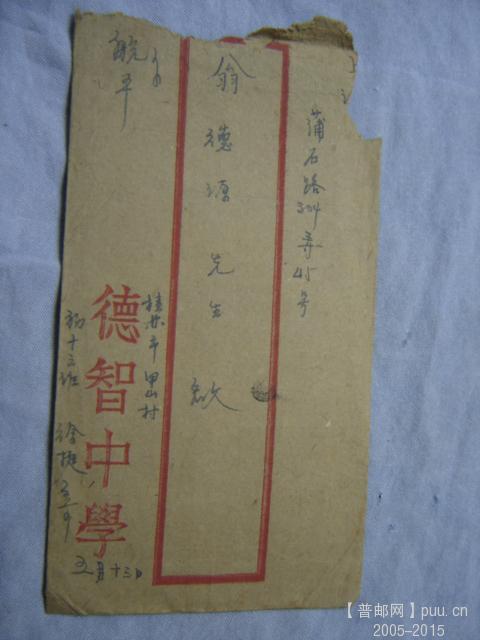 蒲石路304弄45号
翁德源先生啟
航平
桂林市甲山村
德智中學
初十三班 徐挺
五月十三日
【普邮网】puu.cn
2005-2015